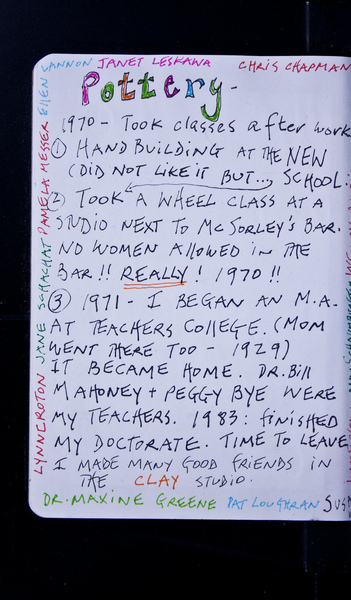 VANNON JANET LESKAWA CHRIS CHAPMAN
Pottery-
1970 - TOOK classes after work
① HAND BUILDING AT THE NEW
(DID NOT LIKE IT BUT..., SCHOOL:
② TOOK A WHEEL CLASS AT A
STUDIO NEXT TO McSORLEY'S BAR.
NO WOMEN ALLOWED IN THE
BAR!! REALLY! 1970!!
③ 1971 - I BEGAN AN M.A.
AT TEACHERS COLLEGE. (MOM
WENT THERE TOO - 1929)
IT BECAME HOME. DR. Bill
MAHONEY + PEGGY BYE WERE
MY TEACHERS. 1983: finished
MY DOCTORATE. TIME TO LEAVE
I MADE MANY GOOD FRIENDS IN
THE CLAY STUDIO.
DR. MAXINE GREENE PAT LOUGHRAN SUS
LYNN CROTON JANE SCHACHAT PAMELA MESSER ELLEN